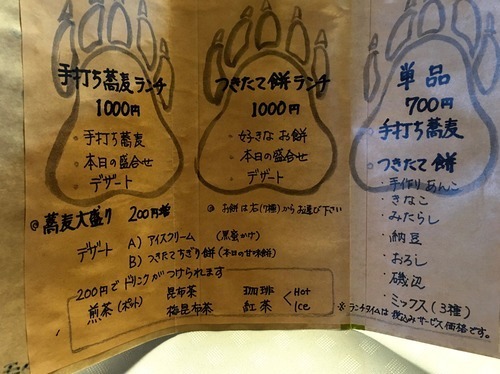 手打ち蕎麦ランチ
1000円
・手打ち蕎麦
・本日の盛合せ
・デザート
◎蕎麦大盛り 200円増
つきたて餅ランチ
1000円
・好きな お餅
・本日の盛合せ
・デザート
◎ お餅は右(7種)からお選び下さい
デザート A) アイスクリーム (黒蜜かけ)
B) つきたてちぎり餅(本日の甘味餅)
200円でドリンクがつけられます
煎茶(ポット) 昆布茶 梅昆布茶 珈琲 紅茶 < Hot Ice
単品
700円
◎手打ち蕎麦
◎つきたて餅
・手作りあんこ
・きなこ
・みたらし
・納豆
・おろし
・磯辺
・ミックス(3種)
※ランチタイムは税込みサービス価格です。